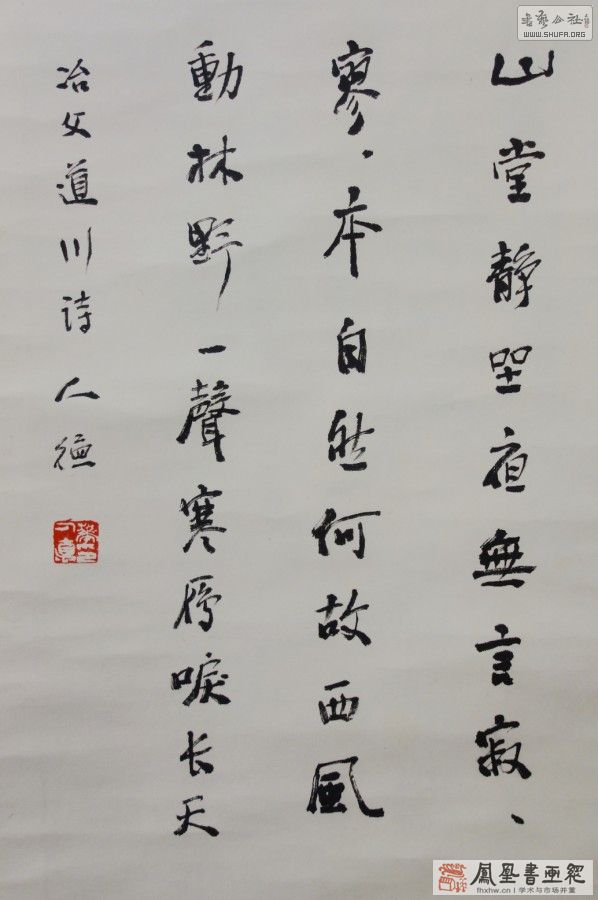 山堂静坐夜無言寂、
寥、本自然何故西風
動林野一聲寒雁唳长天
冶父道川诗 人德
書藝公社
WWW.SHUFA.ORG
鳳凰書画網
fhxhw.cn | 学术与市场并重